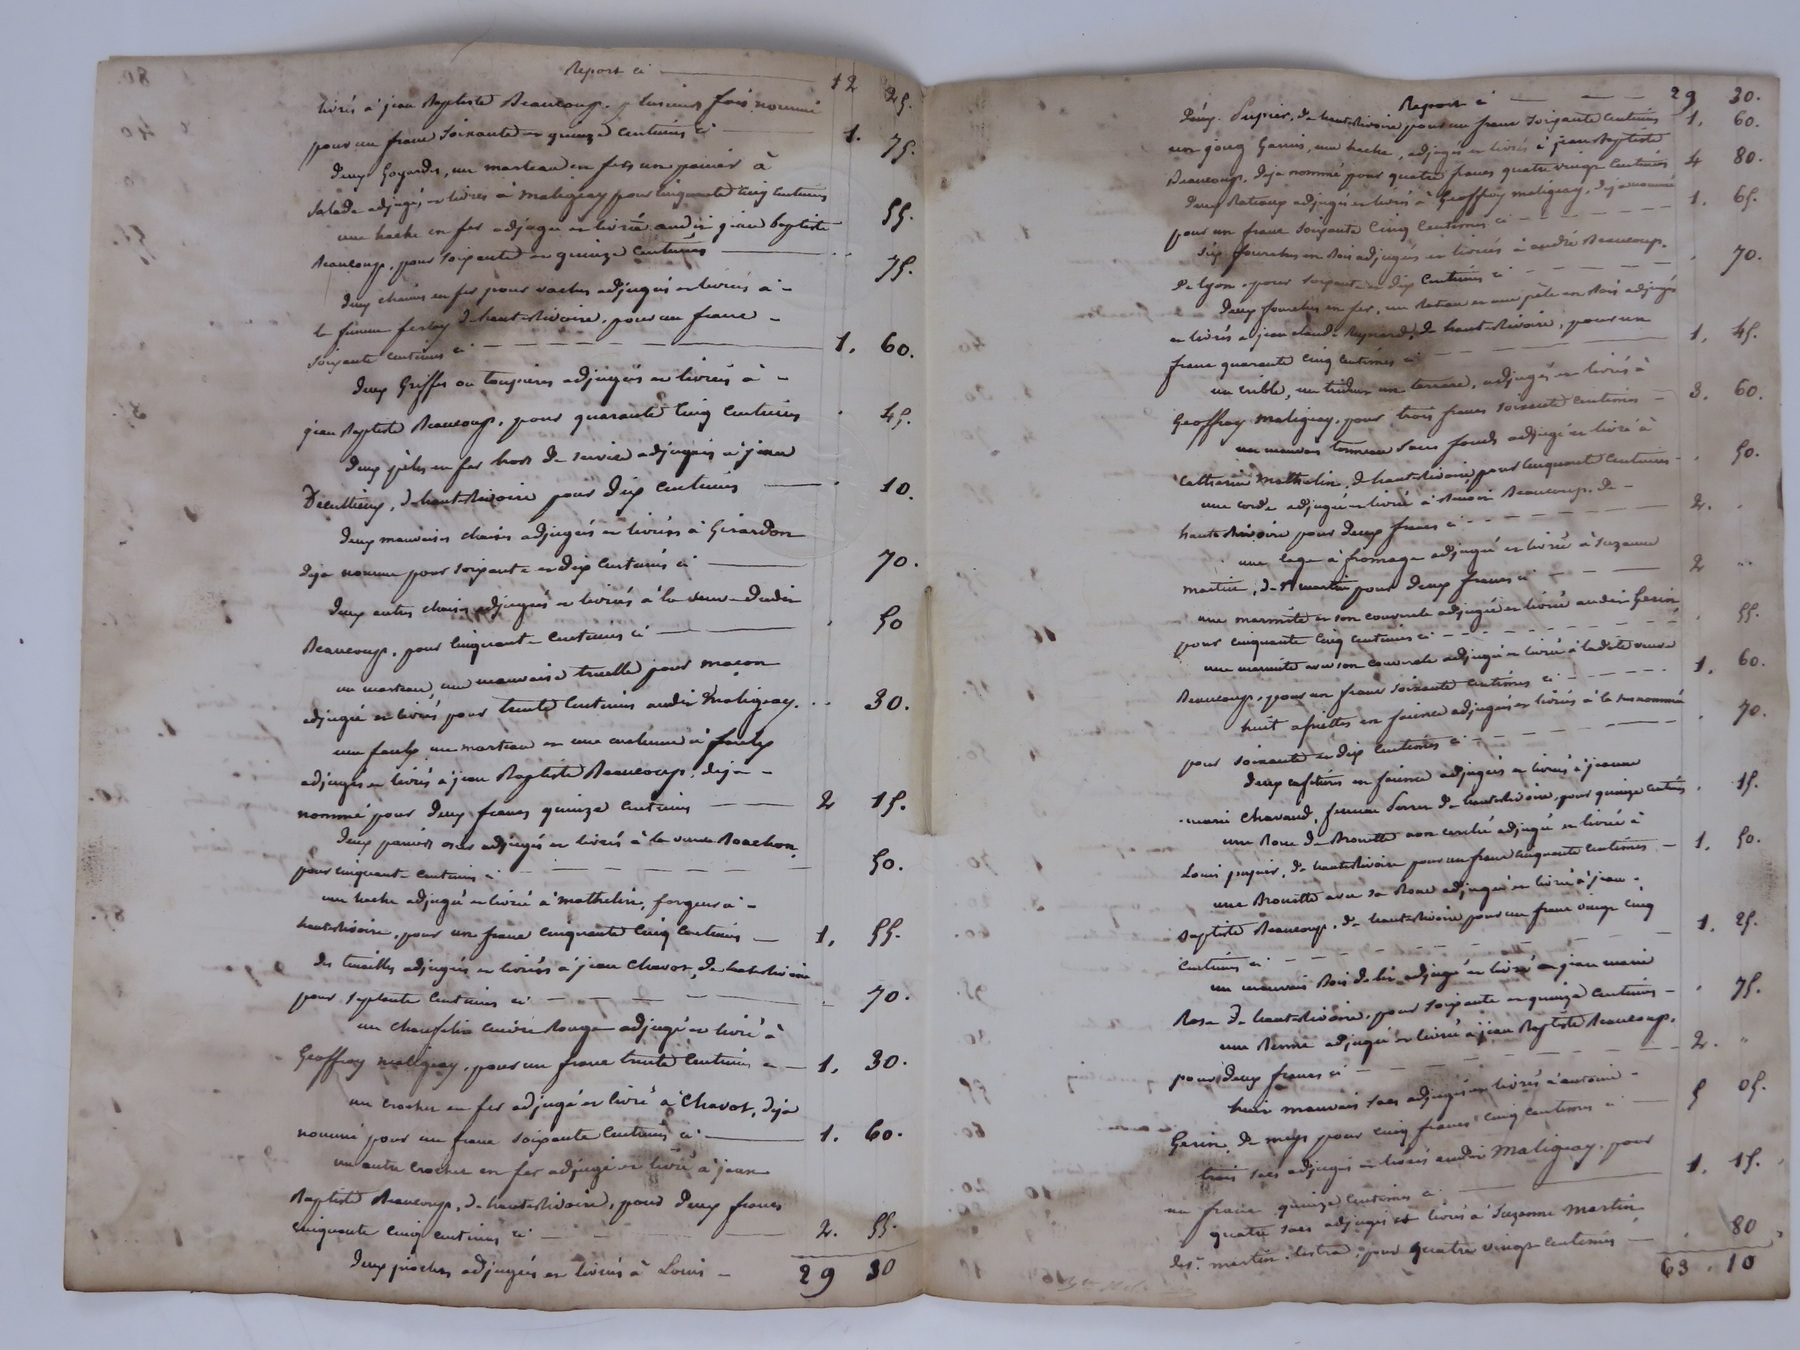 Report ci — 12 25.
livrés à jean Baptiste Beaucoup, plusieurs fois nommé
pour un franc soixante et quinze centimes ci — 1. 75.
deux Goyardes, un marteau en fer, un panier à
salade adjugés et livrés à Maligeay pour cinquante cinq centimes 55.
une hache en fer adjugée et livrée audit jean baptiste
Beaucoup, pour soixante et quinze centimes — 75.
deux chaines en fer pour vaches adjugés et livrés à —
la femme ferlay de hauterivoire, pour un franc —
soixante centimes ci — 1. 60.
deux Griffes ou taupières adjugés et livrés à —
jean Baptiste Beaucoup, pour quarante cinq centimes . 45.
deux pèles en fer hors de service adjugés à jean
, de hauterivoire pour dix centimes — . 10.
deux mauvaises chaises adjugés et livrées à Girardon
déja nommé pour soixante et dix centimes ci — 70.
deux autres chaises adjugés et livrés à la veuve
Beaucoup, pour cinquante centimes ci — . 50
un marteau, une mauvaise truelle pour maçon
adjugée et livrés pour trente centimes audit Maligeay. . . 30.
une faulx un marteau et une enclume à faulx
adjugés et livrés à jean Baptiste Beaucoup, déja —
nommé pour deux francs quinze centimes — 2 15.
deux paniers osier adjugés et livrés à la veuve Bouchon,
pour cinquante centimes ci — 50.
une hache adjugé et livré à Mathelin, forgeur à —
hauterivoire, pour un franc cinquante cinq centimes — 1. 55.
des tenailles adjugés et livrés à jean Chavot, de hauterivoire
pour septante centimes ci — 70.
un cuivre Rouge adjugé et livré à
Geoffray Maligeay, pour un franc trente centimes ci — 1. 30.
un crochet en fer adjugé et livré à Chavot, déja
nommé pour un franc soixante centimes ci — 1. 60.
un autre crochet en fer adjugé et livré à jean
Baptiste Beaucoup, de hauterivoire, pour deux francs
cinquante cinq centimes ci — 2. 55.
deux pioches adjugés et livrés à Louis — 29 30
Report ci — 29 30.
Pupier, de hauterivoire pour un franc soixante centimes 1. 60.
un joug Garni, une hache, adjugés et livrés à jean Baptiste
Beaucoup, déja nommé pour quatre francs quatre vingt centimes 4 80.
deux Rateaux adjugés et livrés à Geoffray Maligeay, déja nommé
pour un franc soixante cinq centimes ci — 1. 65.
six fourches en Bois adjugés et livrés à andré Beaucoup,
de lyon, pour soixante et dix centimes ci — . 70.
deux fourches en fer, un Rateau et une pèle en Bois adjugés
et livrés à jean claude Reynard, de hauterivoire, pour un
franc quarante cinq centimes ci — 1. 45.
un crible, un un terrare, adjugés et livrés à
Geoffray Maligeay, pour trois francs soixante centimes — 3. 60.
un mauvais tonneau sans fonds adjugé et livré à
Catherine Mathelin, de hauterivoire pour cinquante centimes — . 50.
une corde adjugé et livrée à Benoit Beaucoup, de —
hauterivoire pour deux francs ci — 2. .
une cage à fromage adjugé et livrée à Suzanne
Martin, de St martin pour deux francs ci — 2 ..
une marmite et son couvercle adjugée et livrée audit Gerin
pour cinquante cinq centimes ci — . 55.
une marmite avec son couvercle adjugé et livré à ladite veuve
Beaucoup, pour un franc soixante centimes ci — 1. 60.
huit assiettes en faience adjugés et livrés à la susnommé
pour soixante et dix centimes ci — . 70.
deux cafetières en faience adjugés et livrés à jeanne
marie Chavand, femme de hauterivoire, pour quinze centimes . 15.
une Roue de Brouette non cerclé adjugé et livrée à
Louis pupier, de hauterivoire pour un franc cinquante centimes — 1. 50.
une Brouette avec sa Roue adjugé et livrée à jean —
Baptiste Beaucoup, de hauterivoire pour un franc vingt cinq
centimes ci — 1. 25.
un mauvais Bois de lit adjugé et livré à jean marie
Rose de hauterivoire, pour soixante et quinze centimes — . 75.
une Benne adjugé et livrée à jean Baptiste Beaucoup,
pour deux francs ci — 2. "
huit mauvais sacs adjugés et livrés à antoine —
Gerin, de meys pour cinq francs cinq centimes ci — 5 05.
trois sacs adjugés et livrés audit Maligeay, pour
un franc quinze centimes ci — 1. 15.
quatre sacs adjugés et livrés à Suzanne Martin
de St martin lestra, pour quatre vingt centimes — . 80
63. 10